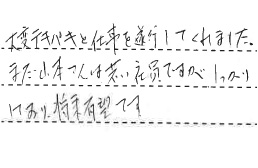 大変テキパキと仕事を遂行してくれました。
また山本さんは若い社員ですが、しっかり
しており、将来有望です